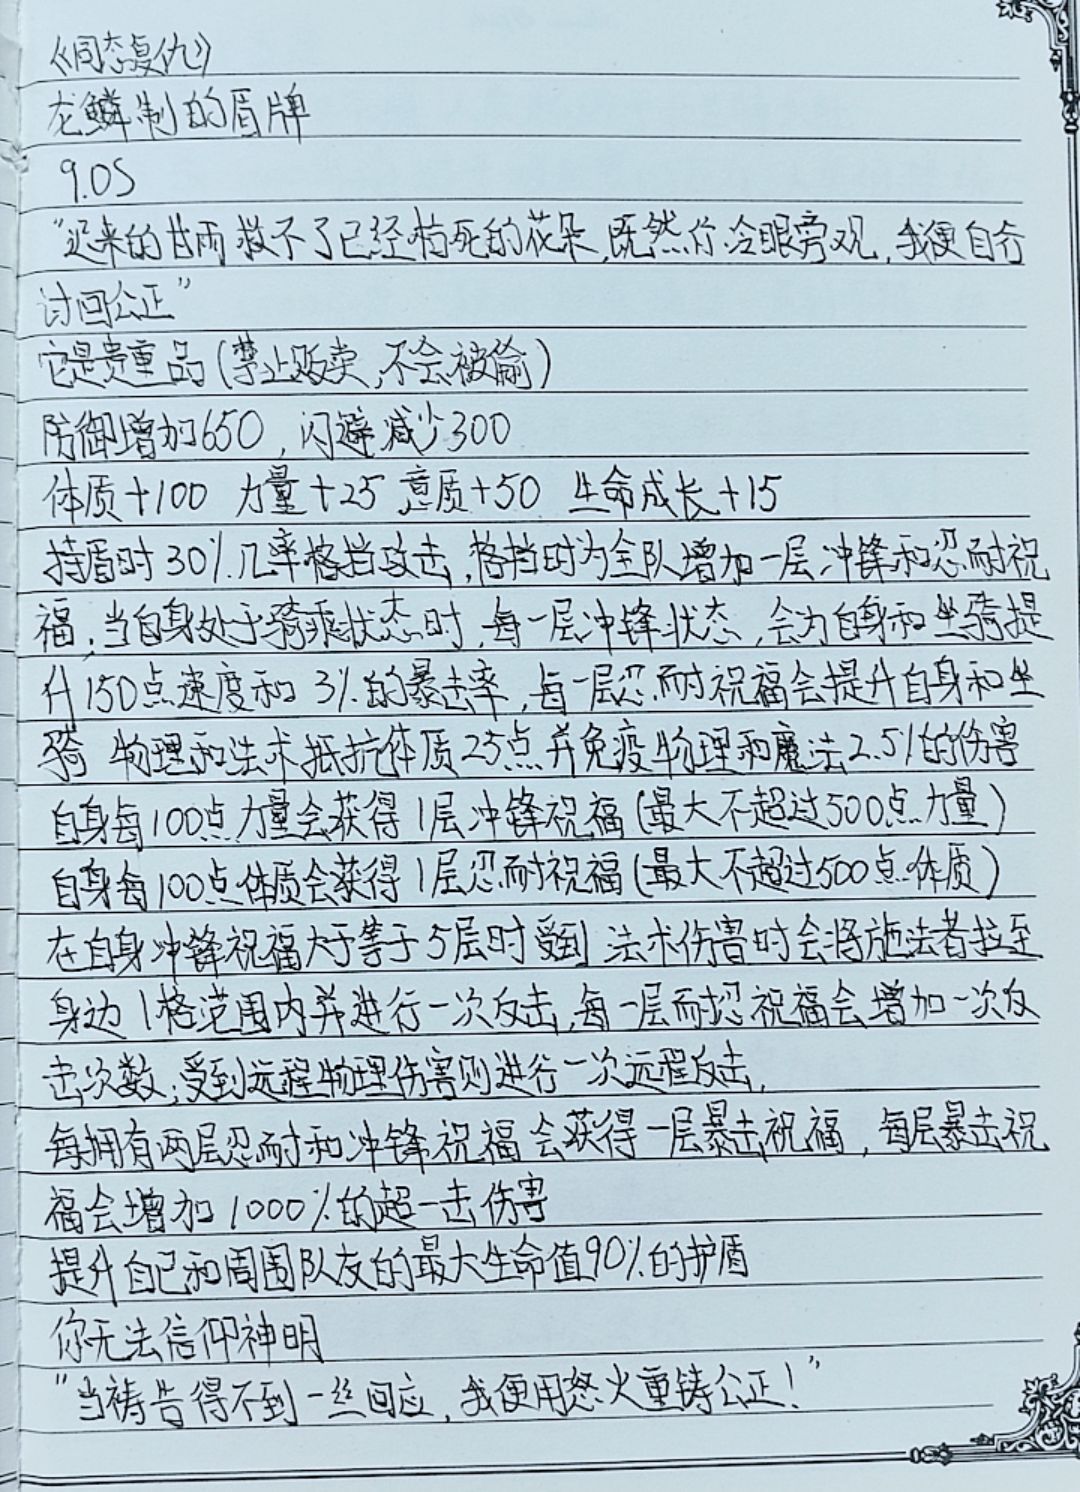 《同态复仇》
龙鳞制的盾牌
9.0S
“迟来的甘雨救不了已经枯死的花朵,既然你冷眼旁观,我便自行
讨回公正”
它是贵重品(禁止贩卖,不会被偷)
防御增加650,闪避减少300
体质+100 力量+25 意质+50 生命成长+15
持盾时30%几率格挡攻击,格挡时为全队增加一层冲锋和忍耐祝
福;当自身处于骑乘状态时,每一层冲锋状态,会为自身和坐骑提
升150点速度和3%的暴击率,每一层忍耐祝福会提升自身和坐
骑 物理和法术抵抗体质25点并免疫物理和魔法2.5%的伤害
自身每100点力量会获得1层冲锋祝福(最大不超过500点力量)
自身每100点体质会获得1层忍耐祝福(最大不超过500点体质)
在自身冲锋祝福大于等于5层时受到法术伤害时会将施法者拉至
身边1格范围内并进行一次反击,每一层耐忍祝福会增加一次反
击次数;受到远程物理伤害则进行一次远程反击,
每拥有两层忍耐和冲锋祝福会获得一层暴击祝福,每层暴击祝
福会增加1000%的超一击伤害
提升自己和周围队友的最大生命值90%的护盾
你无法信仰神明
“当祷告得不到一丝回应,我便用怒火重铸公正!”